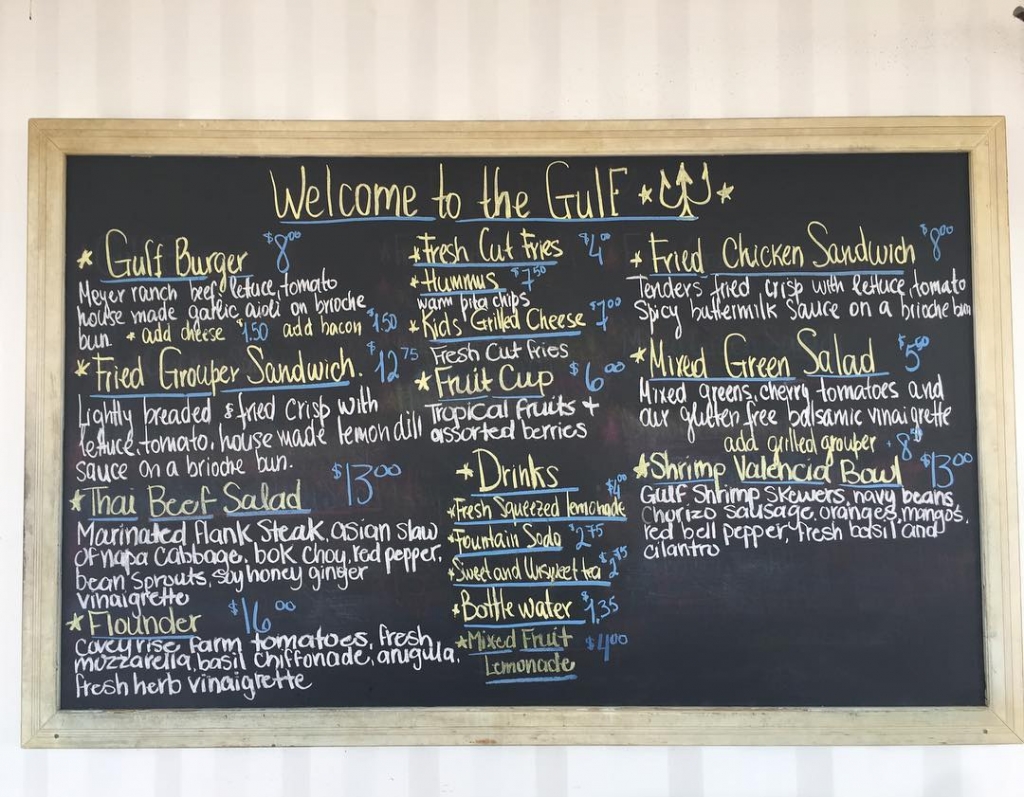 Welcome to the Gulf
* Gulf Burger $8.00
Meyer ranch beef, lettuce, tomato
house made garlic aioli on brioche
bun. * add cheese $1.50 add bacon $1.50
* Fried Grouper Sandwich. $12.75
Lightly breaded & fried crisp with
lettuce, tomato, house made lemon dill
sauce on a brioche bun.
* Thai Beef Salad $13.00
Marinated Flank Steak, asian slaw
of napa cabbage, bok choy, red pepper,
bean sprouts, soy honey ginger
vinaigrette
* Flounder $16.00
coveyrise farm tomatoes, fresh
mozzarella, basil chiffonade, arugula,
fresh herb vinaigrette
* Fresh Cut Fries $4.00
* Hummus $7.50
warm pita chips
* Kids' Grilled Cheese $7.00
Fresh Cut fries
* Fruit Cup $6.00
Tropical fruits +
assorted berries
* Drinks
* Fresh Squeezed lemonade $4.00
* Fountain Soda $2.75
* Sweet and Unsweet tea $2.75
* Bottle water $1.35
* Mixed Fruit $4.00
Lemonade
* Fried Chicken Sandwich $8.00
Tenders fried crisp with lettuce, tomato
Spicy buttermilk sauce on a brioche bun
* Mixed Green Salad $5.50
Mixed greens, cherry tomatoes and
our gluten free balsamic vinaigrette
add grilled grouper + 8
* Shrimp Valencia Bowl $13.00
Gulf Shrimp Skewers, navy beans
chorizo sausage, oranges, mangos,
red bell pepper, fresh basil and
cilantro